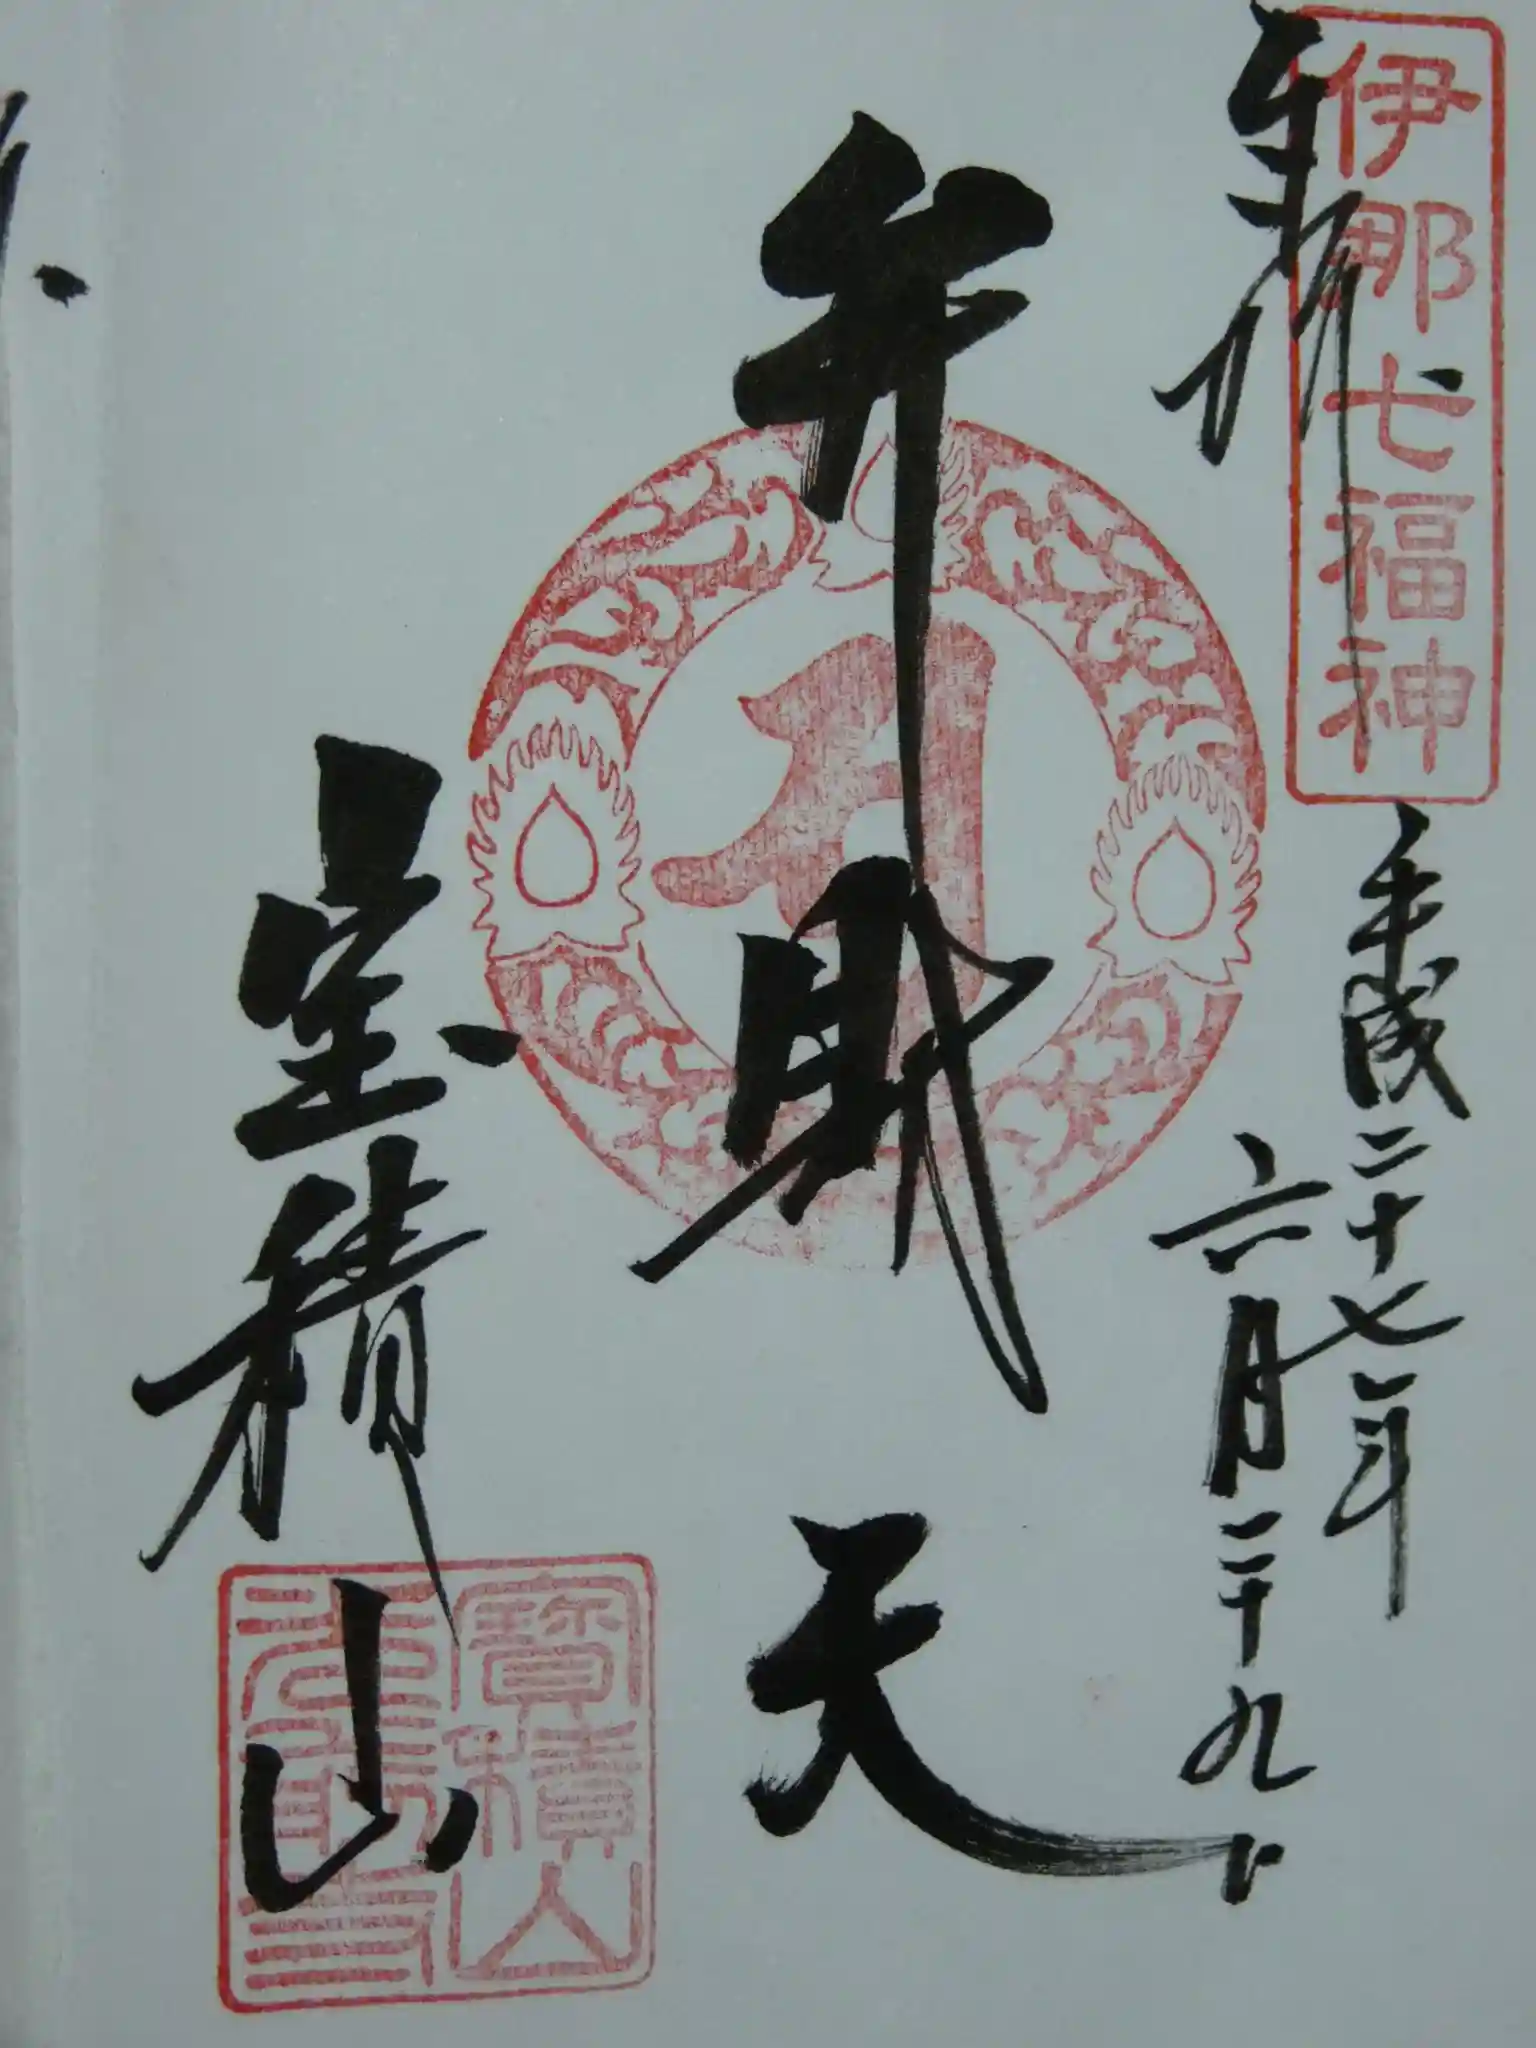 奉拝
伊那七福神
平成二十七年
六月二十九日
弁財天
宝積山